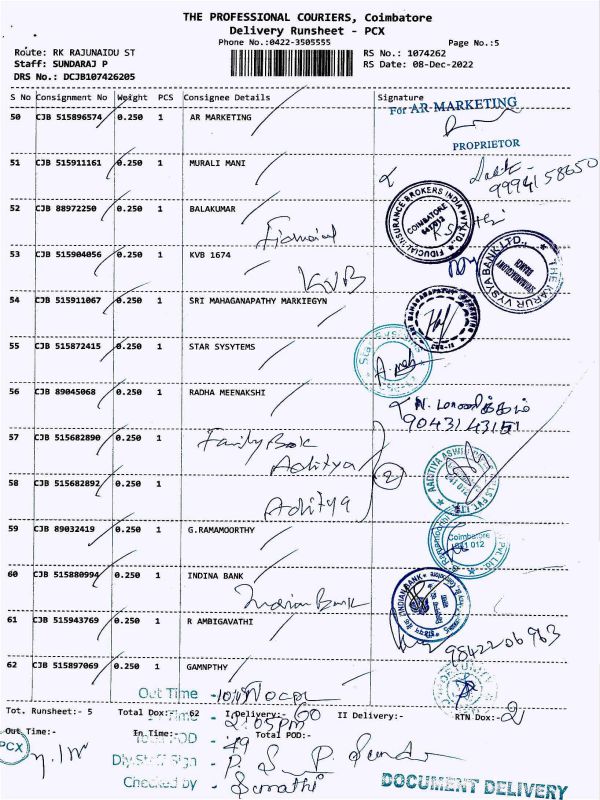 THE PROFESSIONAL COURIERS, Coimbatore
Delivery Runsheet - PCX
Phone No.:0422-3505555
Page No.:5
Route: RK RAJUNAIDU ST
RS No.: 1074262
Staff: SUNDARAJ P
RS Date: 08-Dec-2022
DRS No.: DCJB107426205
S No Consignment No Weight PCS Consignee Details Signature
50 CJB 515896574 0.250 1 AR MARKETING
For AR MARKETING
PROPRIETOR
51 CJB 515911161 0.250 1 MURALI MANI
9994158650
52 CJB 88972250 0.250 1 BALAKUMAR
FIDUCIAL INSURANCE BROKERS INDIA PVT LTD
COIMBATORE
641 012
53 CJB 515904056 0.250 1 KVB 1674
KVB
THE KARUR VYSYA BANK LTD.,
54 CJB 515911067 0.250 1 SRI MAHAGANAPATHY MARKIEGYN
55 CJB 515872415 0.250 1 STAR SYSYTEMS
56 CJB 89045068 0.250 1 RADHA MEENAKSHI
9043143151
57 CJB 515682890 0.250 1 Family Book
Aditya
2
58 CJB 515682892 0.250 1
Aditya
59 CJB 89032419 0.250 1 G.RAMAMOORTHY
Coimbatore
641 012
60 CJB 515880994 0.250 1 INDINA BANK
Indian Bank
INDIAN BANK
61 CJB 515943769 0.250 1 R AMBIGAVATHI
9842206963
62 CJB 515897069 0.250 1 GAMNPTHY
Out Time -
Tot. Runsheet:- 5 Total Dox:- 62 I Delivery:- 60 II Delivery:- RTN Dox:- 2
Time - 2:05pm
Out Time:- In Time:- Total POD:-
PCX
Total POD - 49
Dly.Staff Sign -
Checked by - Sumathi
DOCUMENT DELIVERY